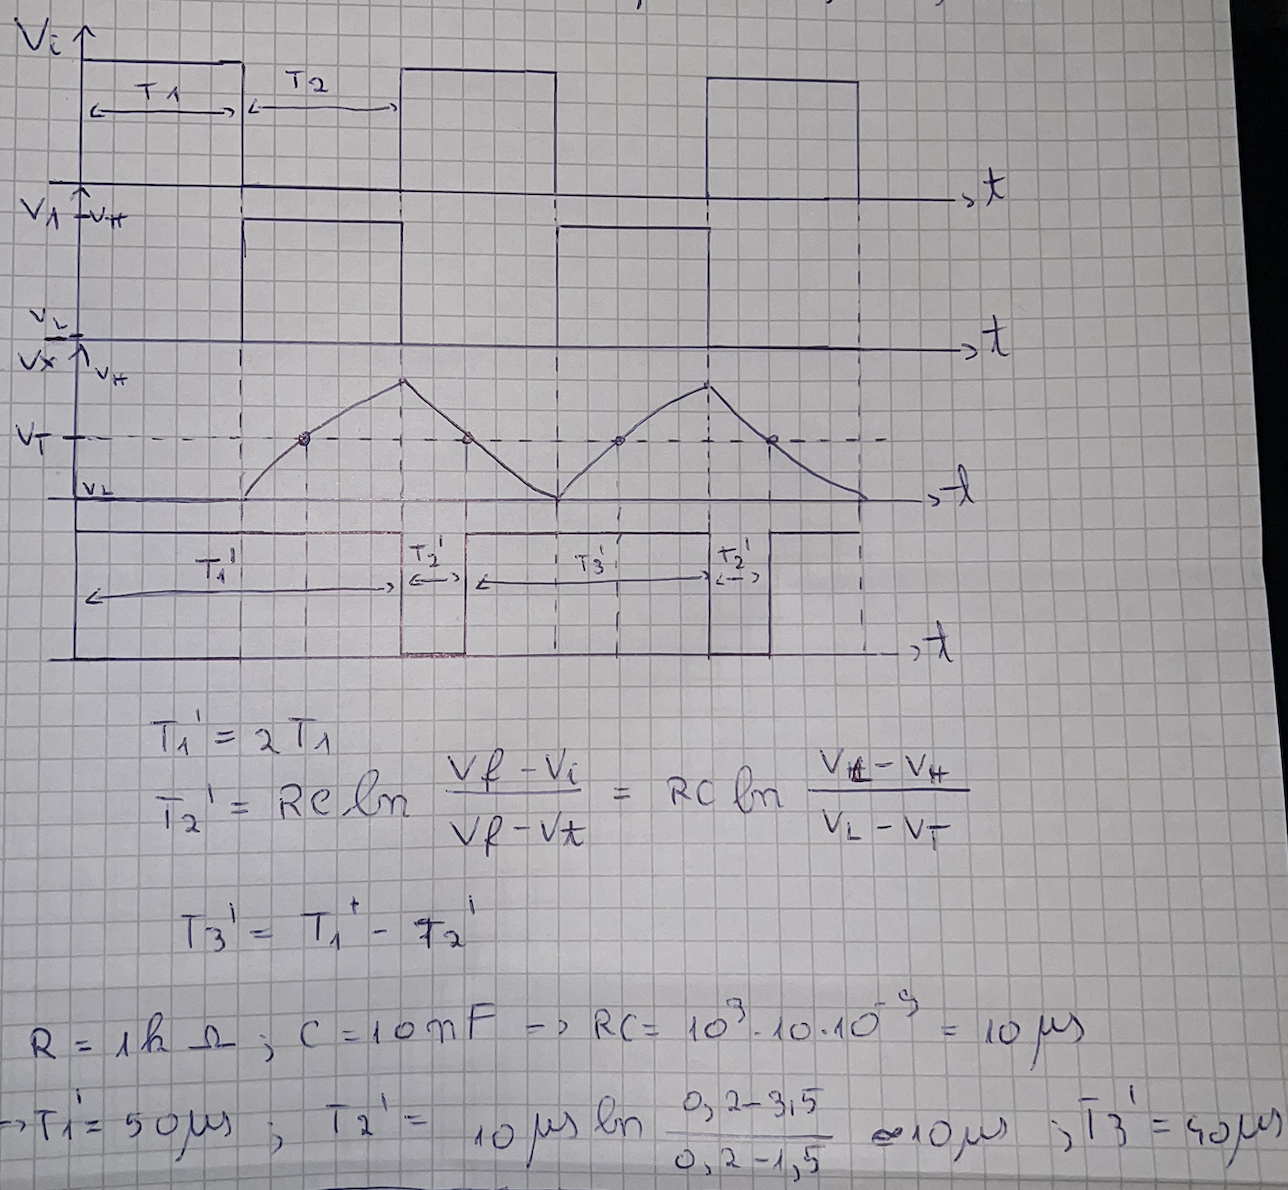 Vi
T1 T2
t
V1 VH
VL
t
Vx VH
VT
VL
t
T1' T2' T3' T2'
t
T1' = 2 T1
T2' = RC ln (Vf - Vi)/(Vf - Vt) = RC ln (VL - VH)/(VL - VT)
T3' = T1' - T2'
R = 1k Ω ; C = 10 nF -> RC = 10³ · 10 · 10⁻⁹ = 10 µs
-> T1' = 50 µs ; T2' = 10 µs ln (0,2 - 3,5)/(0,2 - 1,5) ≈ 10 µs ; T3' = 40 µs